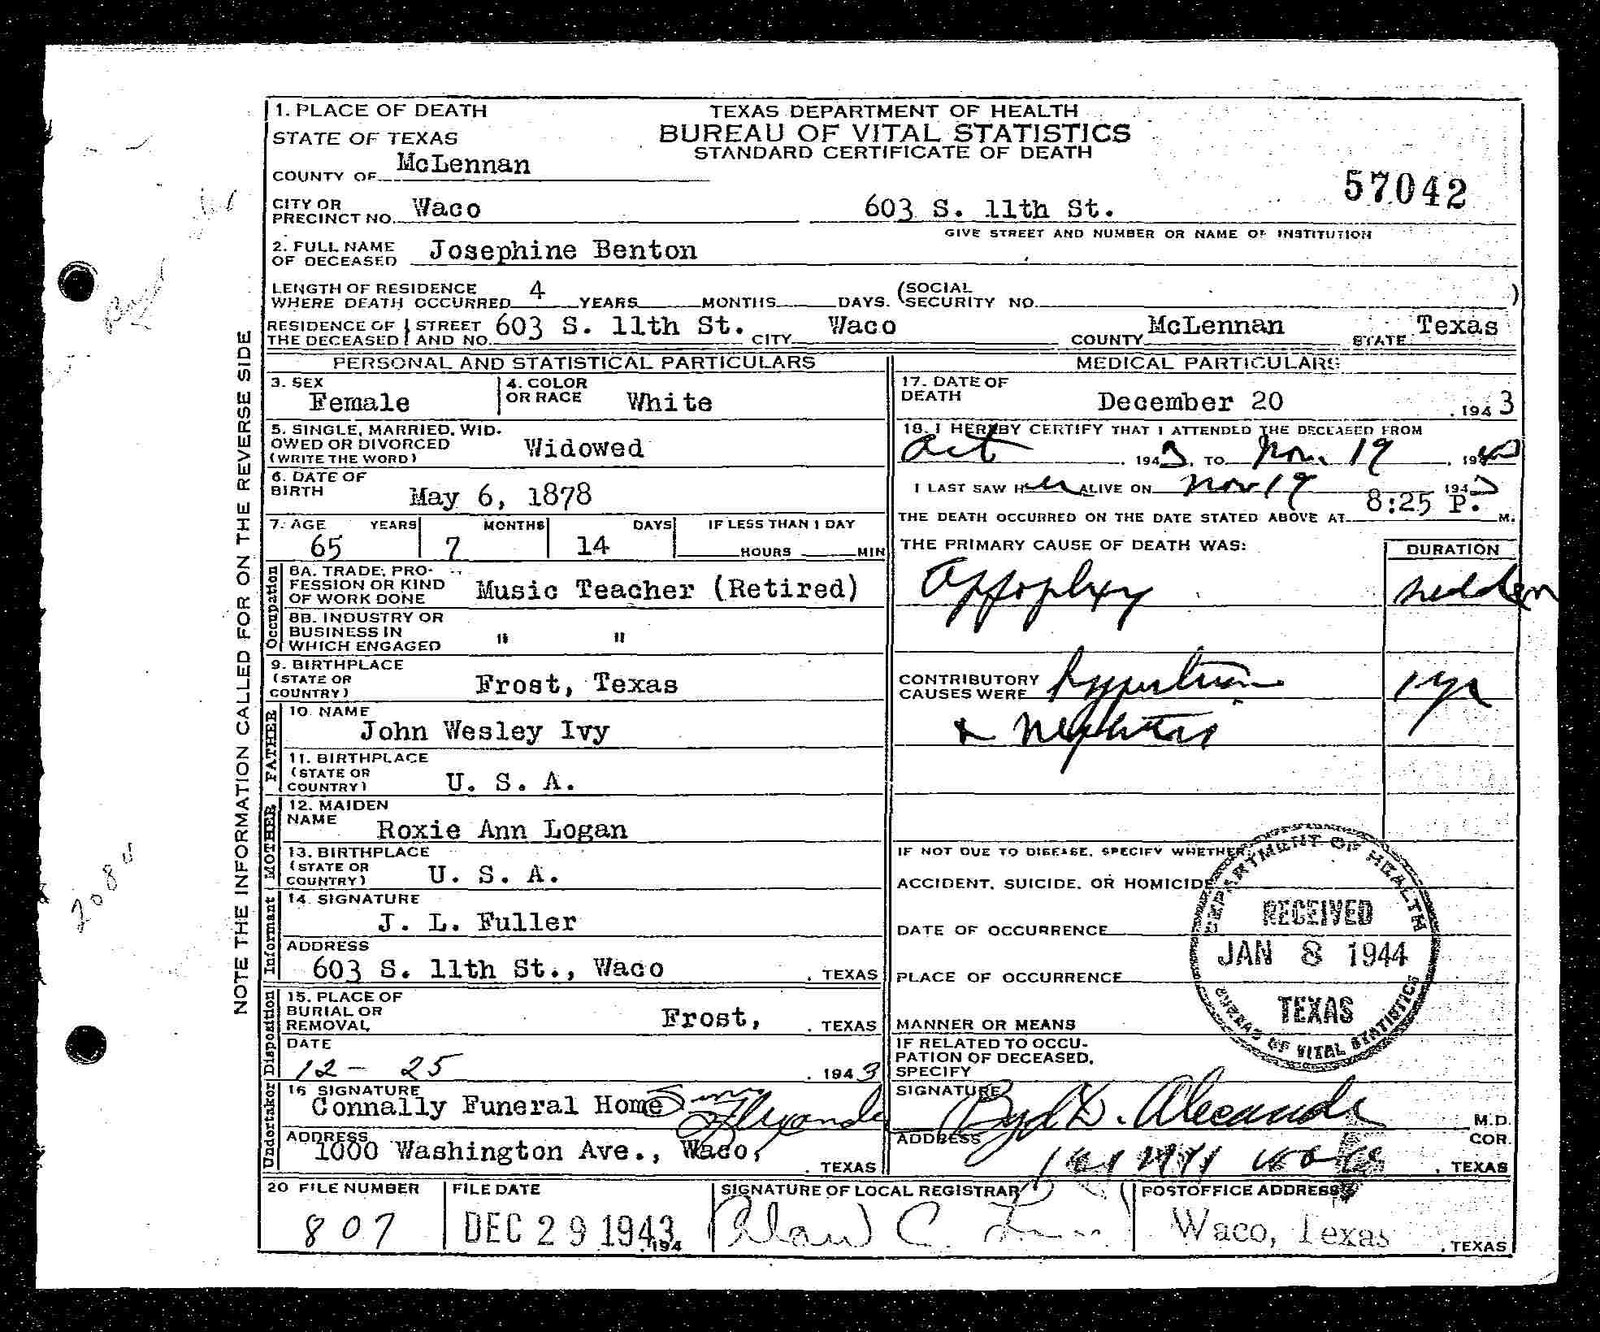 1. PLACE OF DEATH
STATE OF TEXAS
COUNTY OF McLennan
TEXAS DEPARTMENT OF HEALTH
BUREAU OF VITAL STATISTICS
STANDARD CERTIFICATE OF DEATH
57042
CITY OR
PRECINCT NO. Waco
603 S. 11th St.
GIVE STREET AND NUMBER OR NAME OF INSTITUTION
2. FULL NAME
OF DECEASED Josephine Benton
LENGTH OF RESIDENCE
WHERE DEATH OCCURRED 4 YEARS MONTHS DAYS. (SOCIAL
SECURITY NO. )
RESIDENCE OF THE DECEASED STREET AND NO. 603 S. 11th St. CITY Waco COUNTY McLennan STATE Texas
NOTE THE INFORMATION CALLED FOR ON THE REVERSE SIDE
PERSONAL AND STATISTICAL PARTICULARS
3. SEX
Female
4. COLOR
OR RACE White
5. SINGLE, MARRIED, WID-
OWED OR DIVORCED
(WRITE THE WORD) Widowed
6. DATE OF
BIRTH May 6, 1878
7. AGE YEARS MONTHS DAYS IF LESS THAN 1 DAY
65 7 14 HOURS MIN
Occupation
8A. TRADE, PRO-
FESSION OR KIND
OF WORK DONE Music Teacher (Retired)
8B. INDUSTRY OR
BUSINESS IN
WHICH ENGAGED " "
9. BIRTHPLACE
(STATE OR
COUNTRY) Frost, Texas
FATHER
10. NAME
John Wesley Ivy
11. BIRTHPLACE
(STATE OR
COUNTRY) U. S. A.
MOTHER
12. MAIDEN
NAME
Roxie Ann Logan
13. BIRTHPLACE
(STATE OR
COUNTRY) U. S. A.
Informant
14. SIGNATURE
J. L. Fuller
ADDRESS
603 S. 11th St., Waco , TEXAS
Disposition
15. PLACE OF
BURIAL OR
REMOVAL Frost, , TEXAS
DATE
12 - 25 , 1943
Undertaker
16 SIGNATURE
Connally Funeral Home
ADDRESS
1000 Washington Ave., Waco, , TEXAS
MEDICAL PARTICULARS
17. DATE OF
DEATH December 20 , 1943
18. I HEREBY CERTIFY THAT I ATTENDED THE DECEASED FROM
Oct , 1943, TO Nov. 19 , 1943
I LAST SAW HER ALIVE ON Nov 19 1943
THE DEATH OCCURRED ON THE DATE STATED ABOVE AT 8:25 P. M.
THE PRIMARY CAUSE OF DEATH WAS: DURATION
Appoplexy sudden
CONTRIBUTORY
CAUSES WERE Hypertension 1 yr
& Nephritis
IF NOT DUE TO DISEASE, SPECIFY WHETHER
ACCIDENT, SUICIDE, OR HOMICIDE
DATE OF OCCURRENCE
PLACE OF OCCURRENCE
MANNER OR MEANS
IF RELATED TO OCCU-
PATION OF DECEASED,
SPECIFY
DEPARTMENT OF HEALTH
RECEIVED
JAN 8 1944
TEXAS
BUREAU OF VITAL STATISTICS
SIGNATURE Byrd D. Alexander M.D.
COR.
ADDRESS , TEXAS
20 FILE NUMBER
807
FILE DATE
DEC 29 1943, 194
SIGNATURE OF LOCAL REGISTRAR
POSTOFFICE ADDRESS
Waco, Texas , TEXAS